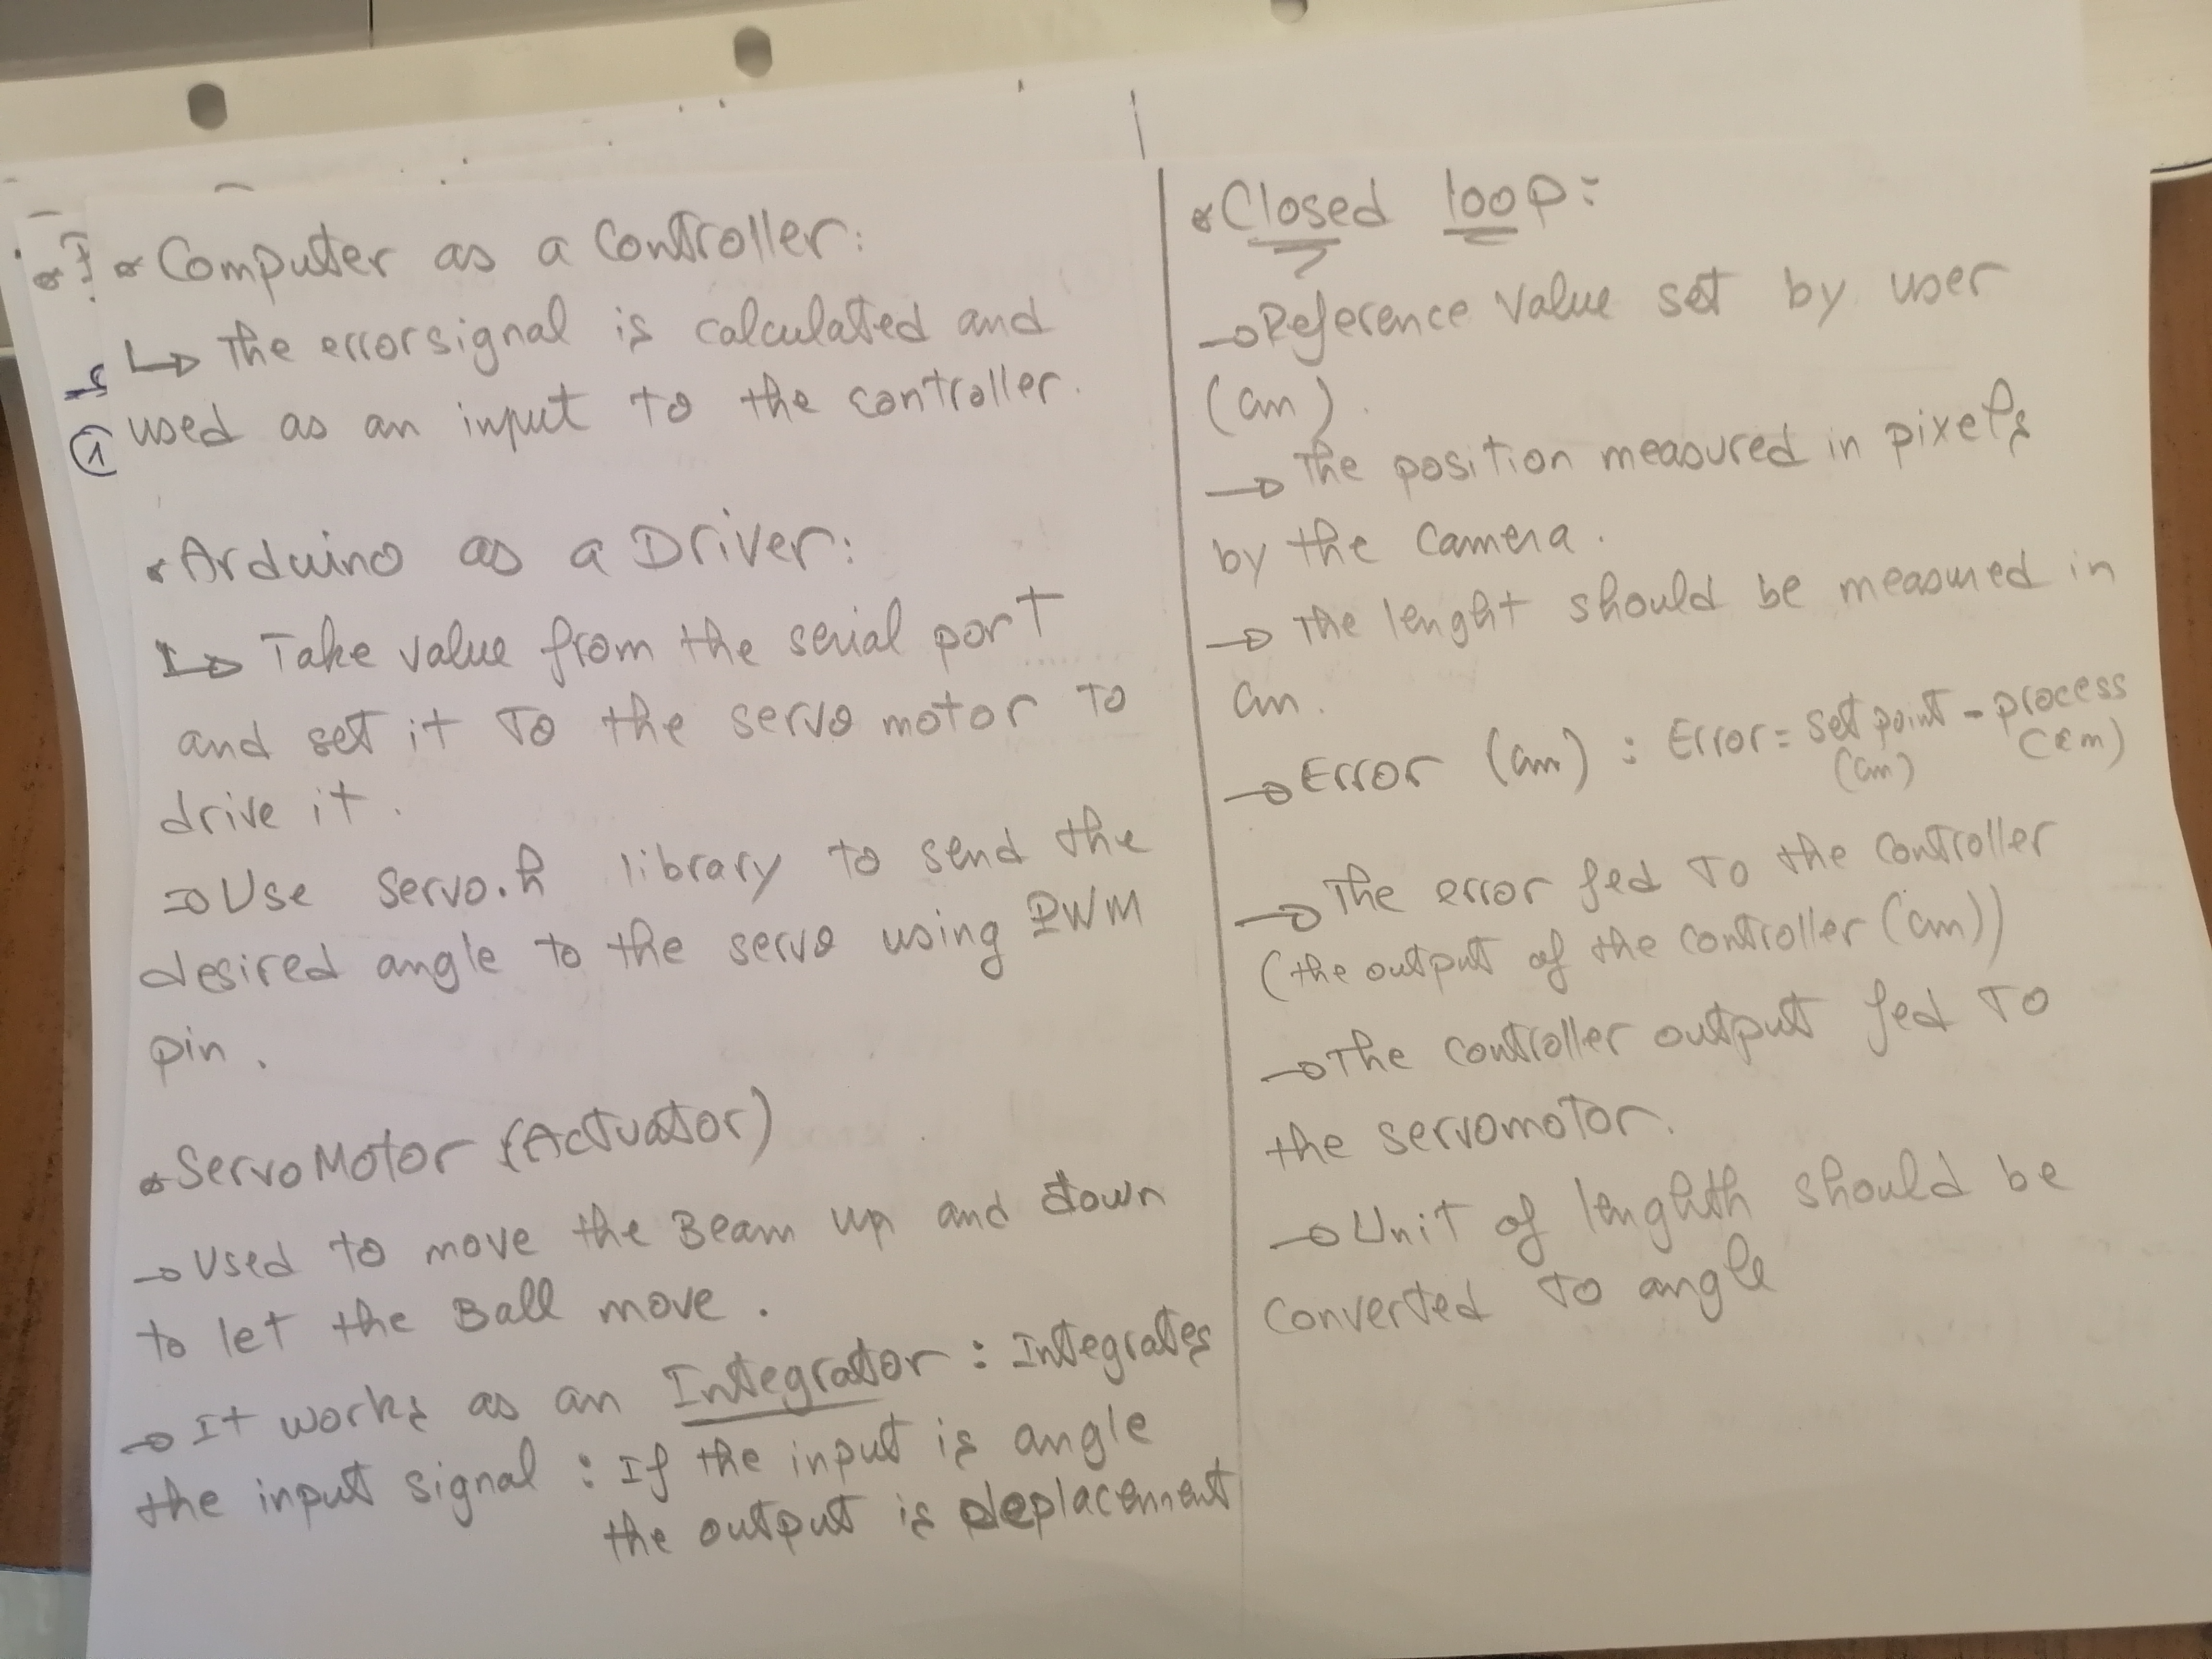 Computer as a Controller:
↳ The error signal is calculated and
used as an input to the controller.
Arduino as a Driver:
↳ Take value from the serial port
and set it To the servo motor to
drive it.
→ Use Servo.h library to send the
desired angle to the servo using PWM
pin.
Servo Motor (Actuator)
→ Used to move the Beam up and down
to let the Ball move.
→ It works as an Integrator: Integrates
the input signal: If the input is angle
the output is deplacement
Closed loop:
→ Reference Value set by user
(cm).
→ The position measured in pixels
by the Camera.
→ The lenght should be measured in
cm.
→ Error (cm): Error = set point - process
(cm) (cm)
→ The error fed To the Controller
(the output of the Controller (cm))
→ The Controller output fed To
the servomotor.
→ Unit of lenghth should be
Converted To angle